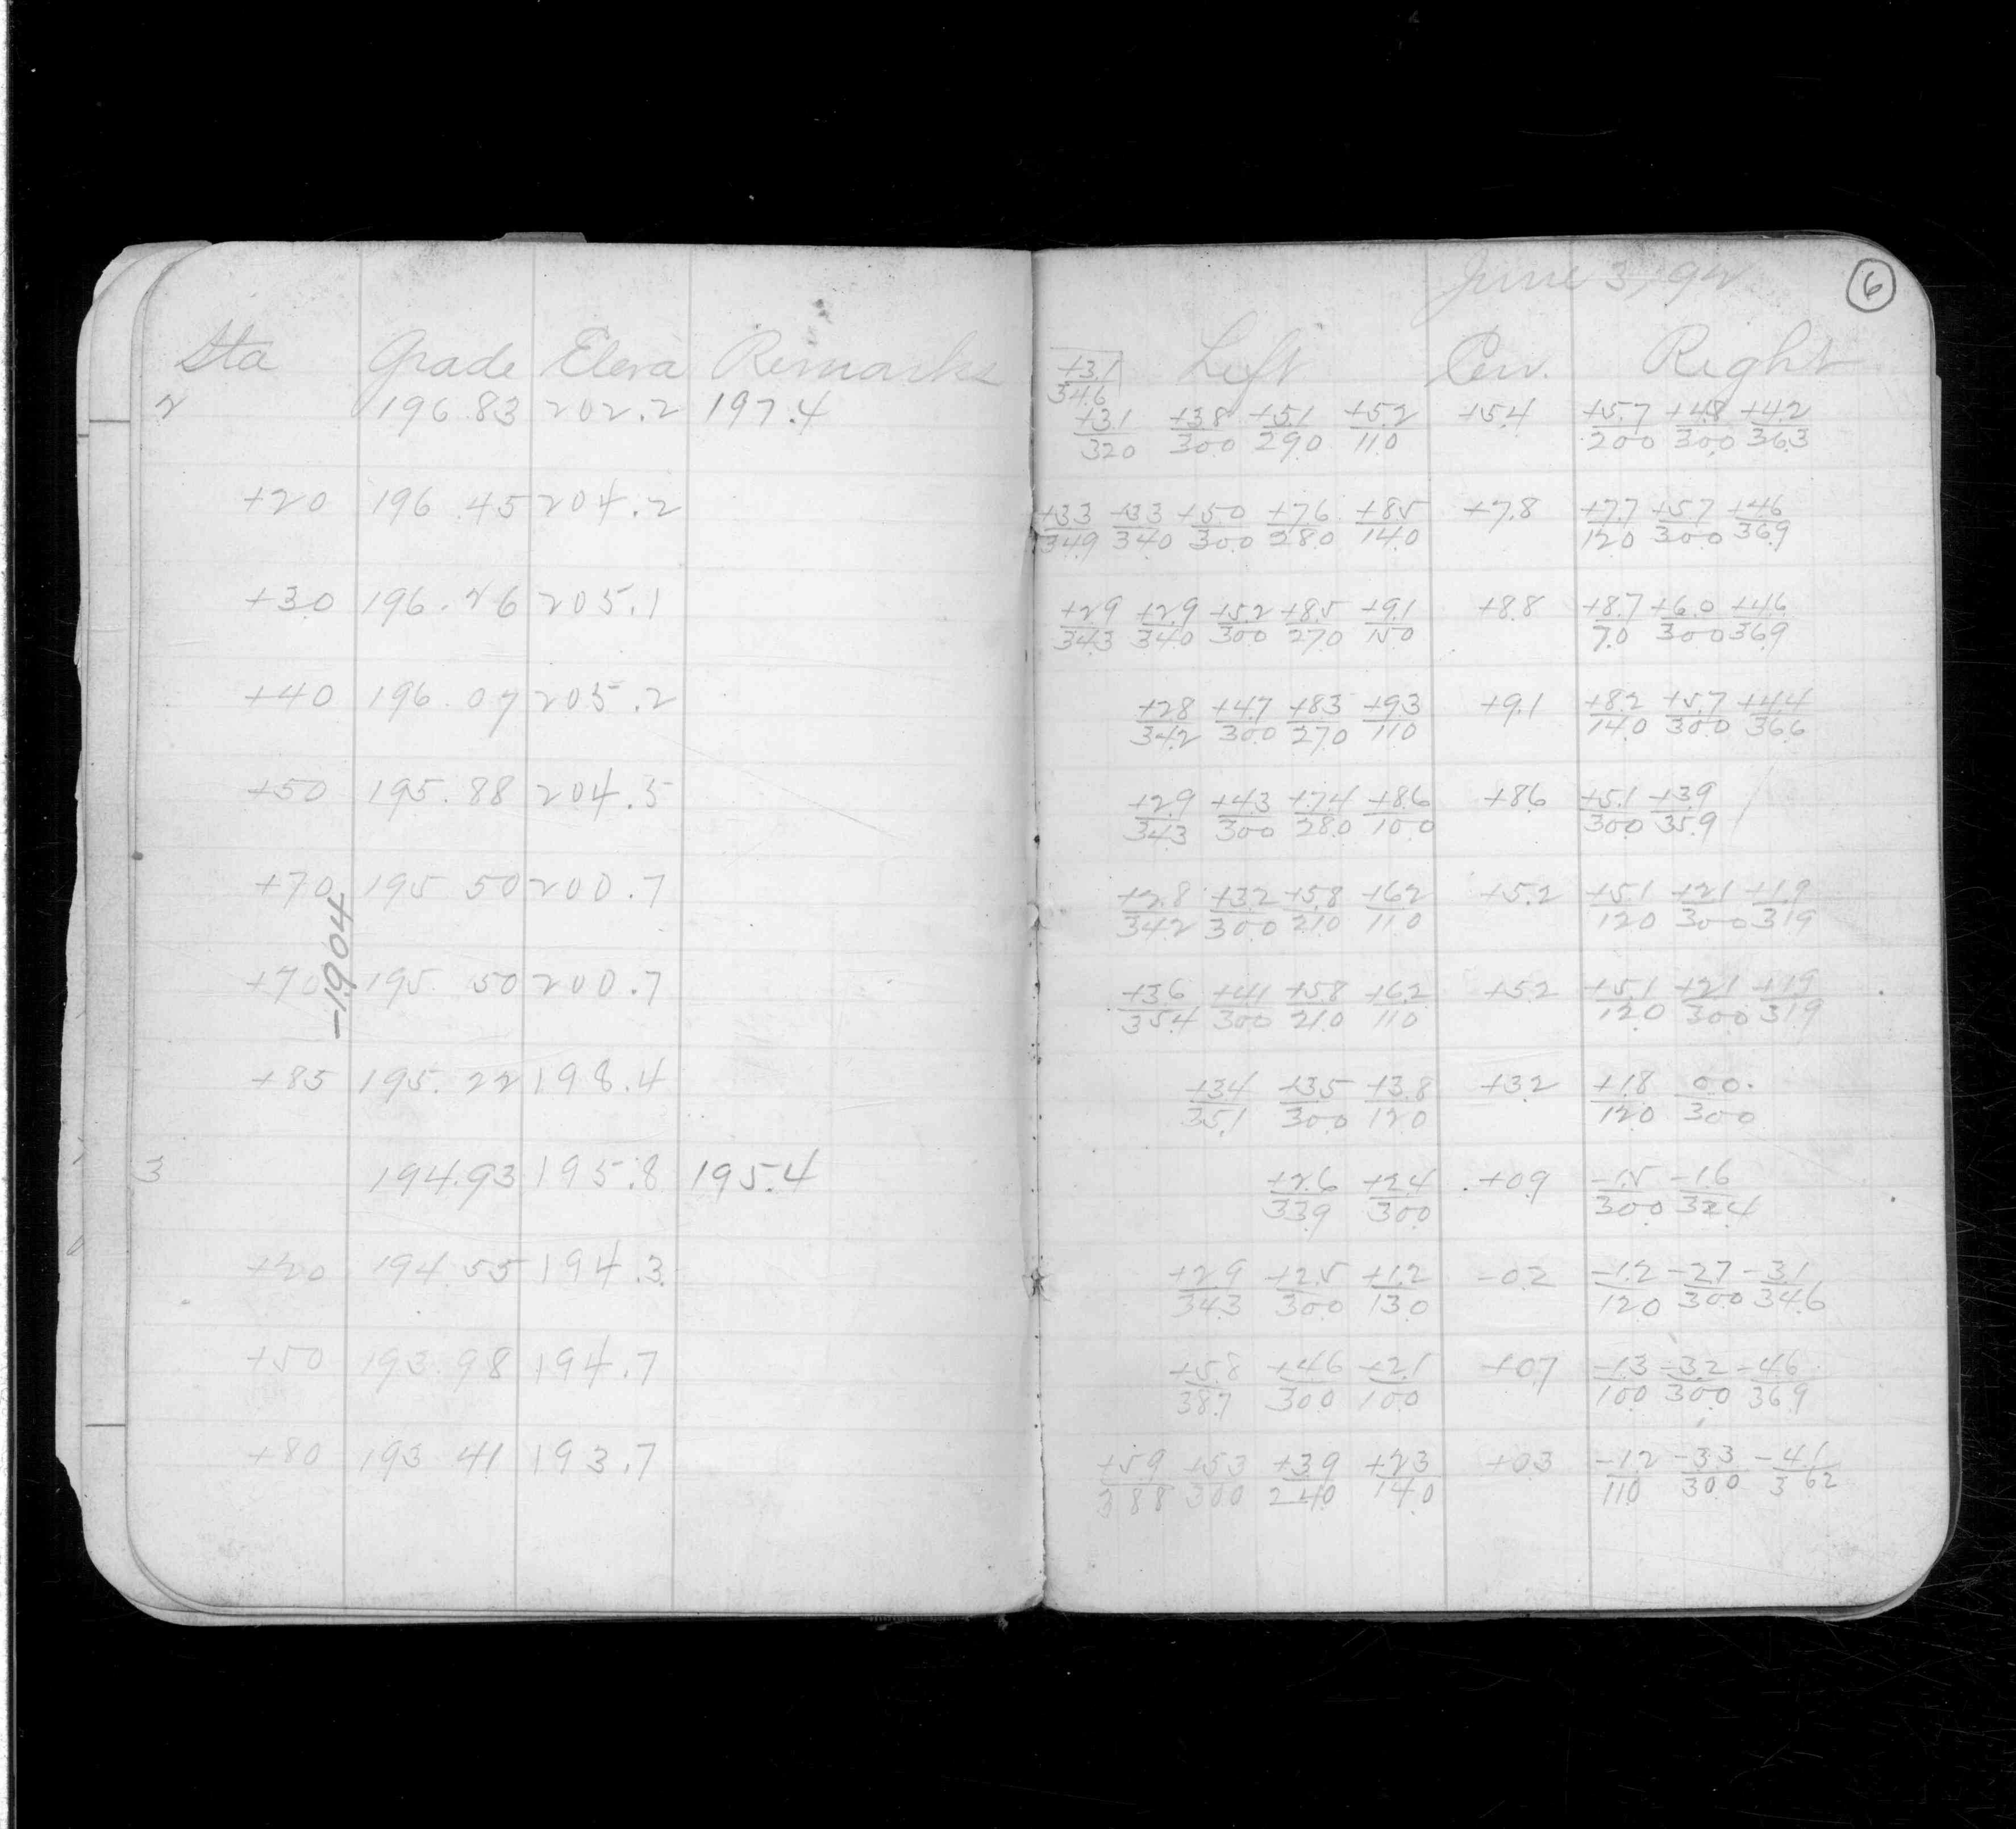 June 3, 92
6
Sta Grade Eleva Remarks
2 196.83 202.2 197.4
+20 196.45 204.2
+30 196.26 205.1
+40 196.07 205.2
+50 195.88 204.5
+70 195 50 200.7
-1904
+70 195. 50 200.7
+85 195.22 198.4
3 194.93 195.8 195.4
+20 194.55 194.3
+50 193.98 194.7
+80 193 41 193.7
Left Cen. Right
+3.1/34.6
+3.1/32.0 +3.8/30.0 +5.1/29.0 +5.2/11.0 +5.4 +5.7/20.0 +4.8/30.0 +4.2/36.3
+3.3/34.9 +3.3/34.0 +5.0/30.0 +7.6/28.0 +8.5/14.0 +7.8 +7.7/12.0 +5.7/30.0 +4.6/36.9
+2.9/34.3 +2.9/34.0 +5.2/30.0 +8.5/27.0 +9.1/15.0 +8.8 +8.7/7.0 +6.0/30.0 +4.6/36.9
+2.8/34.2 +4.7/30.0 +8.3/27.0 +9.3/11.0 +9.1 +8.2/14.0 +5.7/30.0 +4.4/36.6
+2.9/34.3 +4.3/30.0 +7.4/28.0 +8.6/10.0 +8.6 +5.1/30.0 +3.9/35.9
+2.8/34.2 +3.2/30.0 +5.8/21.0 +6.2/11.0 +5.2 +5.1/12.0 +2.1/30.0 +1.9/31.9
+3.6/35.4 +4.1/30.0 +5.8/21.0 +6.2/11.0 +5.2 +5.1/12.0 +2.1/30.0 +1.9/31.9
+3.4/35.1 +3.5/30.0 +3.8/12.0 +3.2 +1.8/12.0 0.0/30.0
+2.6/33.9 +2.4/30.0 +0.9 -1.5/30.0 -1.6/32.4
+2.9/34.3 +2.5/30.0 +1.2/13.0 -0.2 -1.2/12.0 -2.7/30.0 -3.1/34.6
+5.8/38.7 +4.6/30.0 +2.1/10.0 +0.7 -1.3/10.0 -3.2/30.0 -4.6/36.9
+5.9/38.8 +5.3/30.0 +3.9/24.0 +2.3/14.0 +0.3 -1.2/11.0 -3.3/30.0 -4.1/36.2